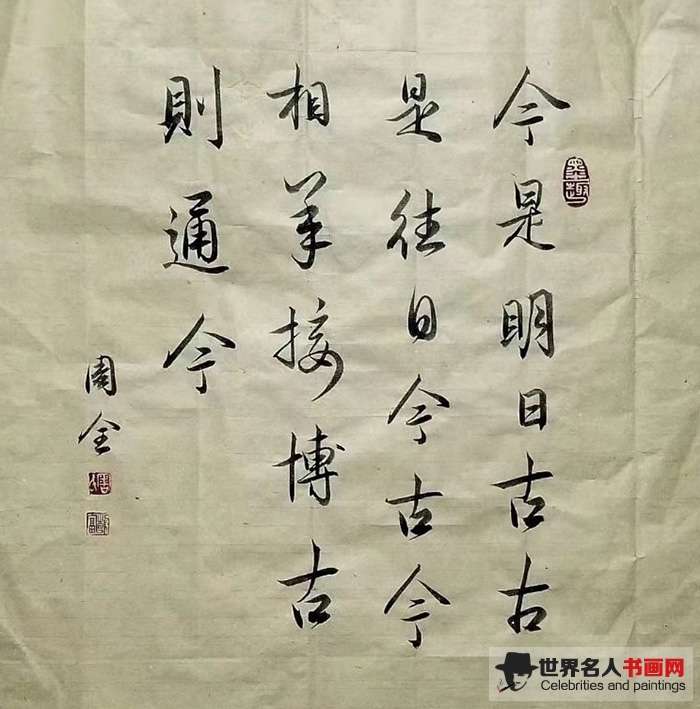 今是明日古古
是往日今古今
相承接博古
則通今
周全
墨趣
世界名人书画网
Celebrities and paintings